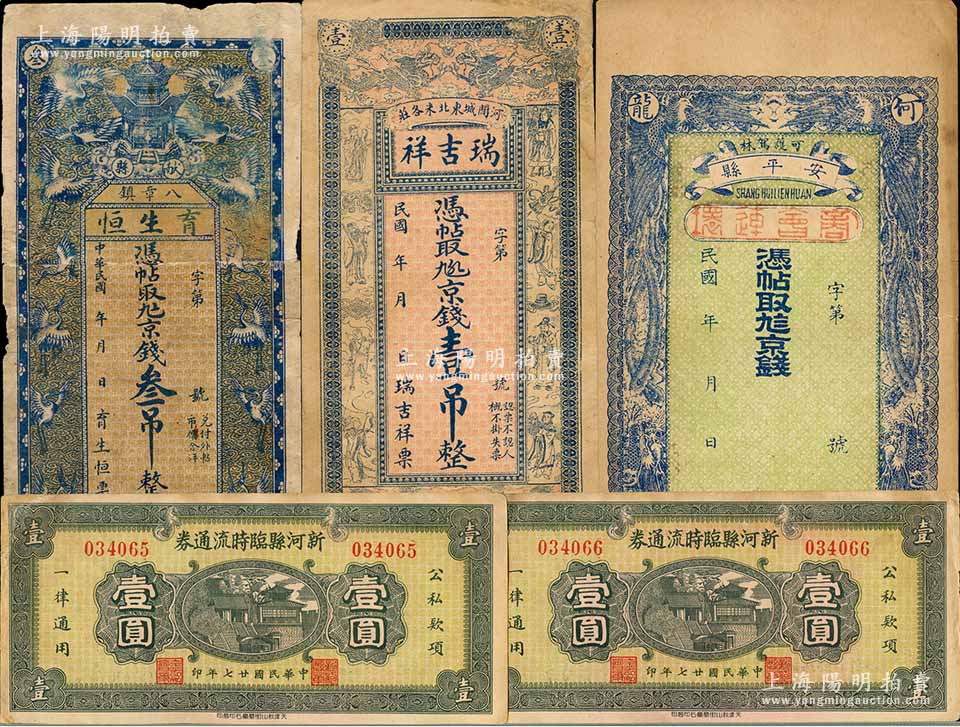 上海陽明拍賣
www.yangmingauction.com
叁
八章鎮
育生恒
憑帖取九京錢叁吊整
字第
號
中華民國 年 月 日
育生恒票
壹
壹
河間城東北米各莊
瑞吉祥
憑帖取九京錢壹吊整
字第
號
認票不認人
概不掛失票
民國 年 月 日
瑞吉祥票
上海陽明拍賣
www.yangmingauction.com
何
龍
安平縣
SHANG HUI LIEN HUAN
憑帖取九京錢
字第
號
民國 年 月 日
新河縣臨時流通券
034065
034065
壹
壹
壹
壹
壹圓
壹圓
公私欵項
一律通用
中華民國廿七年印
新河縣臨時流通券
034066
034066
壹
壹
壹
壹圓
壹圓
公私欵項
一律通用
中華民國廿七年印
上海陽明拍賣
www.yangmingauction.com